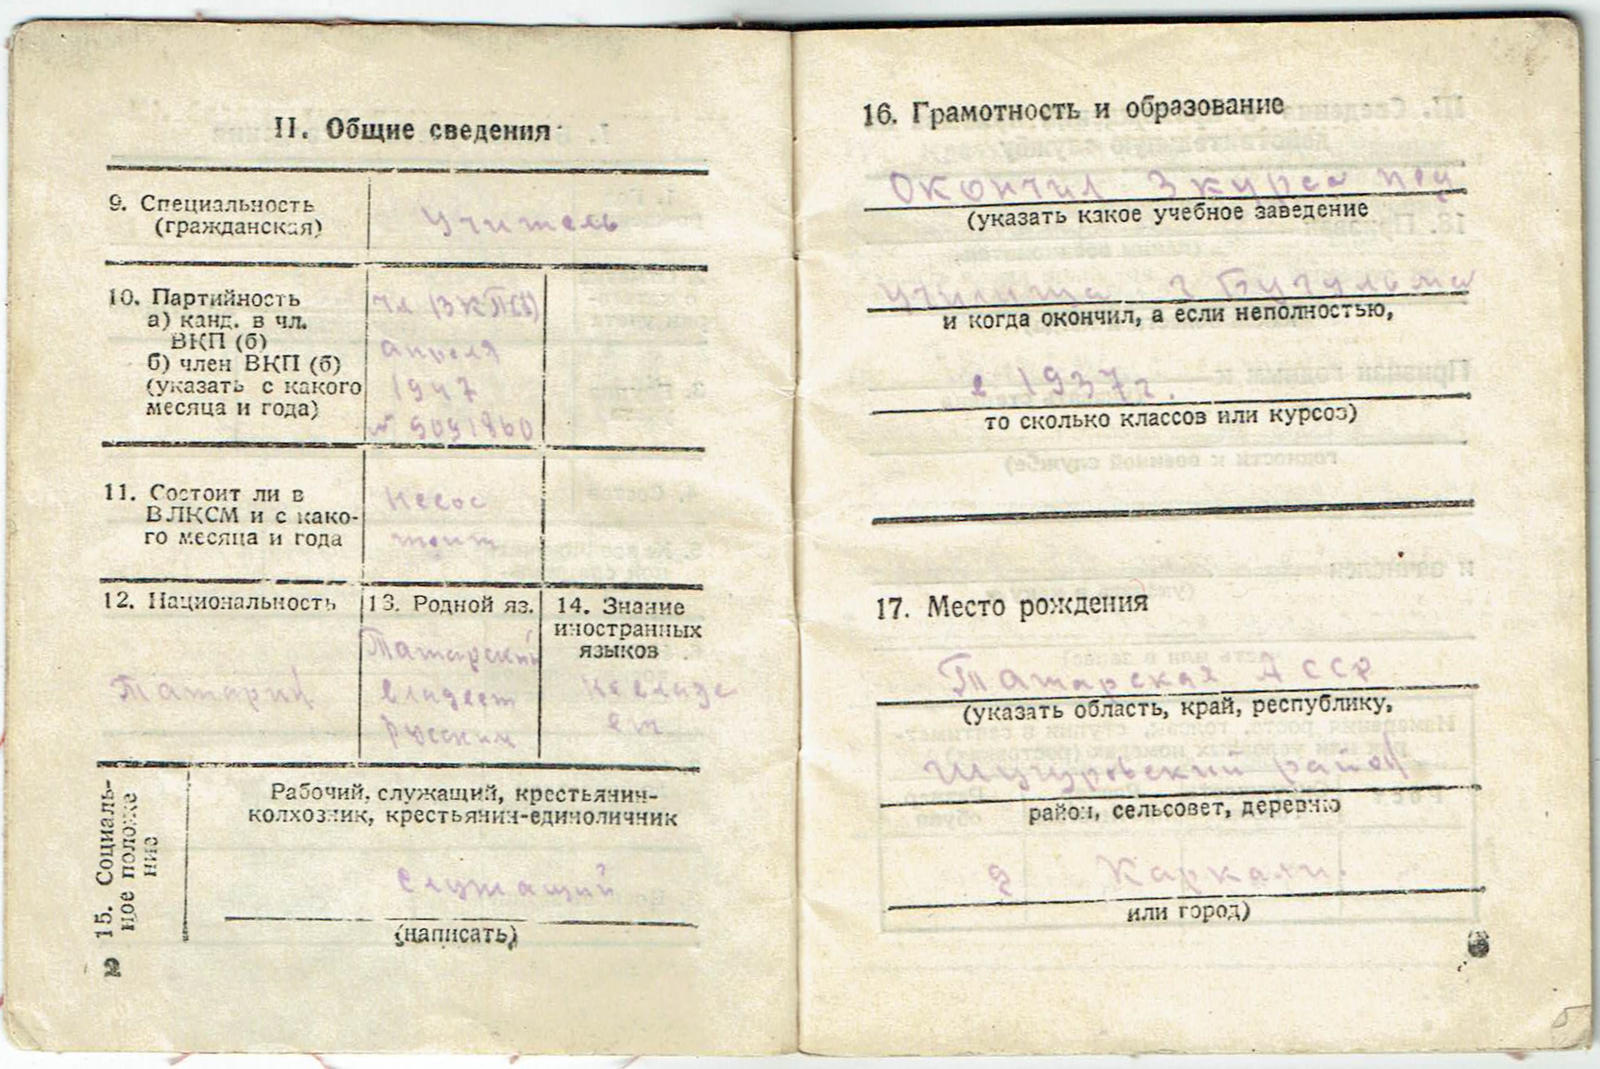 II. Общие сведения
9. Специальность
(гражданская)
учитель
10. Партийность
а) канд. в чл.
ВКП (б)
б) член ВКП (б)
(указать с какого
месяца и года)
чл ВКП(б)
апреля
1947
№ 9091860
11. Состоит ли в
ВЛКСМ и с како-
го месяца и года
несос
тоит
12. Национальность
Татарин
13. Родной яз.
Татарский
владеет
русским
14. Знание
иностранных
языков
не владе
ет
15. Социаль-
ное положе
ние
Рабочий, служащий, крестьянин-
колхозник, крестьянин-единоличник
Служащий
(написать)
2
16. Грамотность и образование
Окончил 3 курса пед
(указать какое учебное заведение
училища г Бугульма
и когда окончил, а если неполностью,
в 1937г.
то сколько классов или курсов)
17. Место рождения
Татарская АССР
(указать область, край, республику,
Шугуровский район
район, сельсовет, деревню
д Каркали.
или город)